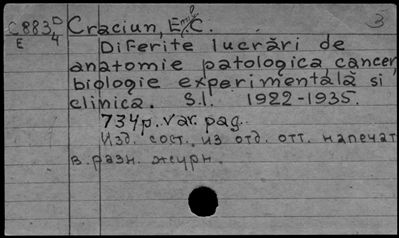 C883 D Craciun, Emil C. 3
E 4
Diferite lucrări de
anatomie patologica, cancer,
biologie experimentală si
clinica. S.l. 1922-1935.
734p. var. pag.
Изд. сост. из отд. отт. напечат.
в разн. журн.